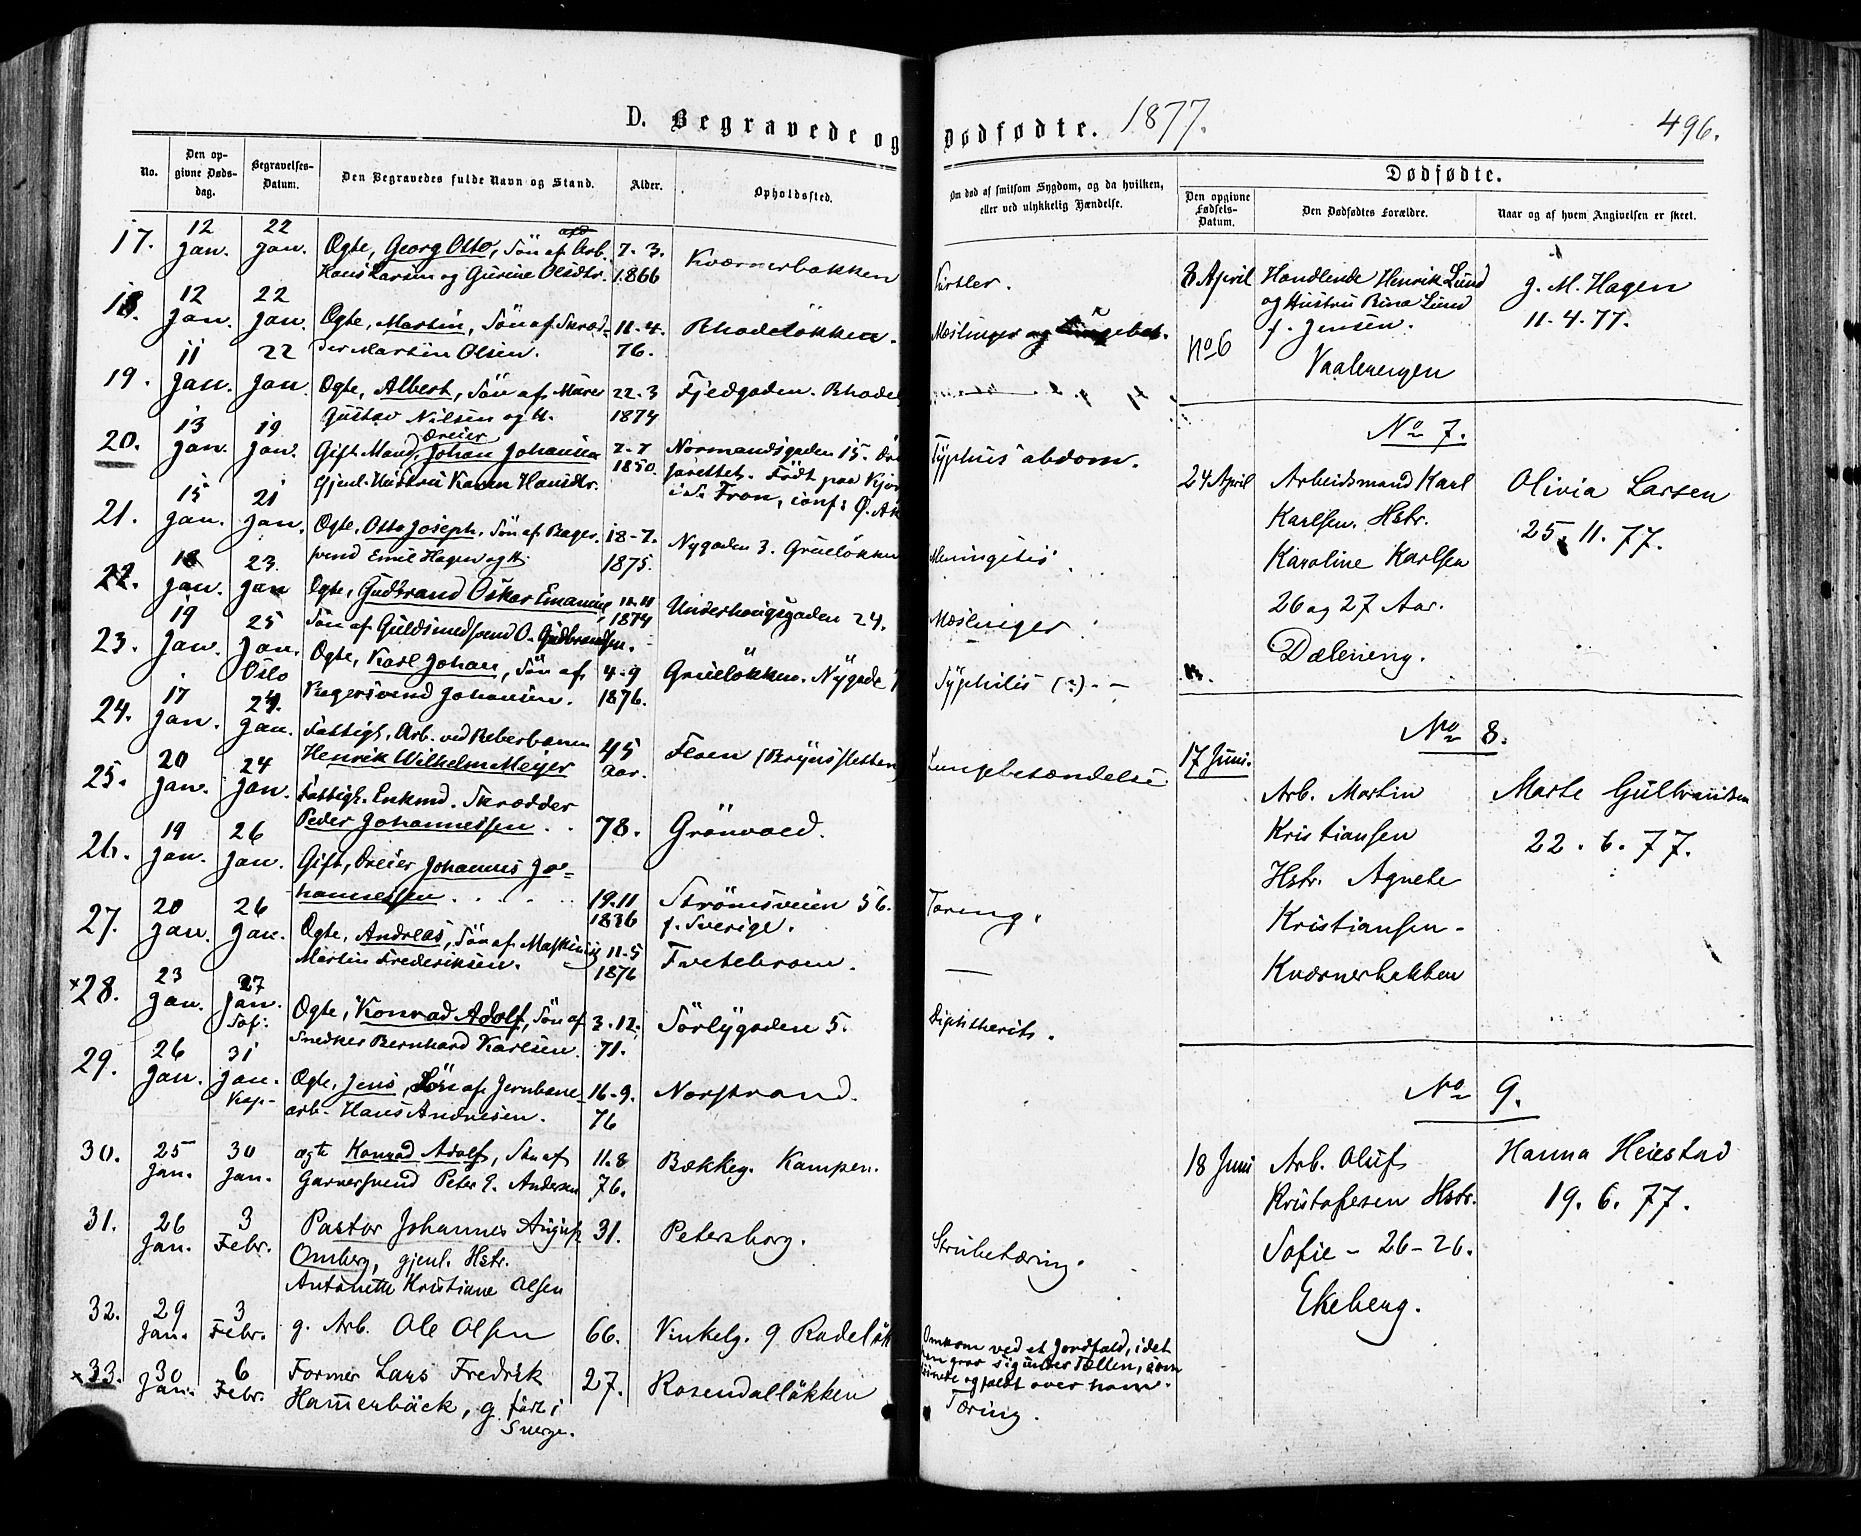 D. Begravede og Dødfødte. 1877.
496.
No.
Den opgivne Dødsdag.
Begravelses-Datum.
Den Begravedes fulde Navn og Stand.
Alder.
Opholdssted.
Om død af smitsom Sygdom, og da hvilken,
eller ved ulykkelig Hændelse.
17. 12 Jan. 22 Jan. Ægte, Georg Otto, Sön af Arb. 7-3.
Hans Larsen og Gurine Olsdtr. 1866 Kværnerbakken
18. 12 Jan. 22 Jan. Ægte, Martin, Sön af Skræd- 11-4. Rhodeløkken. Mæslinger og
der Martin Olsen. 76.
19. 11 Jan. 22 Jan Ægte, Albert, Sön af Murer 22-3 Fjedgaden. Rhodel
Gustav Nilsen og H. 1874
20. 13 Jan. 19 Jan. Dreier
Gift Mand, Johan Johansen 7-7 Normandsgaden 15. Typhus abdom.
Gjenl. Hustru Karen Hansdtr. 1850. Født paa
i S. Fron, conf: Ø. Ak
21. 15 Jan. 21 Jan. Ægte, Otto Joseph, Sön af Bager- 18-7. Nygaden 3. Grüneløkken Meningitis
svend Emil Hagen og H. 1875.
22. 18 Jan. 23 Jan Ægte, Gudbrand Oskar Emanuel, 11-11 Underhaugsgaden 24. Mæslinger
Sön af Guldsmedsvend O. Gudbrandsen. 1874
23. 19 Jan. 25 Jan. Oslo Ægte, Karl Johan, Sön af 4-9 Grüneløkken. Nygade Syphilis (?). -
Bagersvend Johansen. 1876.
24. 17 Jan. 24. Jan. Fattigl. Arb. ved Reberbanen 45 Floen (Brynsfletten) Lungebetændelse
Henrik Wilhelm Meyer Aar.
25. 20 Jan. 24 Jan. Fattigl. Enkmd. Skrædder
Peder Johannessen . . 78. Grönvold.
26. 19 Jan. 26 Jan. Gift, Dreier Johannes Jo-
hannessen . . . . 19.11 1836 Strömsveien 56. Tæring.
f. Sverige.
27. 20 Jan. 26 Jan. Ægte, Andreas, Sön af Maskinist 11-5 Tvetebroen. —
Martin Frederiksen. 1876
×28. 23 Jan. 27 Jan. Sof: Ægte, Konrad Adolf, Sön af 3-12. Sörlygaden 5. Diphtherits.
Snedker Bernhard Karlsen. 71.
29. 26 Jan. 31 Jan. Kap- Ægte, Jens, Sön af Jernbane- 16-9. Norstrand.
arb. Hans Andresen. 76
30. 25 Jan. 30 Jan. ægte Konrad Adolf, Sön af 11.8 Bækkeg. Kampen.
Garversvend Peter E. Andersen 76.
31. 26 Jan. 3 Febr. Pastor Johannes August 31. Petersborg. Strubetæring.
Omberg, gjenl. Hstr.
Antonette Kristiane Olsen
32. 29 Jan. 3 Febr. g. Arb. Ole Olsen 66. Vinkelg. 9 Rodeløk Omkom ved et Jordfald, idet
han grov sig under Tællen, som
løsnede og faldt over ham.
×33. 30 Jan. 6 Febr. Former Lars Fredrik 27. Rosendalløkken Tæring.
Hammerbäck, g. født i
Sverge.
Dødfødte.
Den opgivne Fødsels-Datum.
Den Dødfødtes Forældre.
Naar og af hvem Angivelsen er skeet.
8 April Handlende Henrik Lund J. M. Hagen
og Hustru Rina Lund 11.4.77.
f. Jensen.
No 6 Vaalerengen
No 7.
24 April Arbeidsmand Karl Olivia Larsen
Karlsen. Hstr. 25. 11. 77.
Karoline Karlsen
26 og 27 Aar.
Dæleneng.
No 8.
17 Juni. Arb. Martin Marte Gulbrandsen
Kristiansen 22. 6. 77.
Hstr. Agnete
Kristiansen -
Kværnerbakken
No 9.
18 Juni Arb. Oluf Hanna Heiestad
Kristofersen Hstr. 19. 6. 77.
Sofie - 26-26.
Ekeberg.